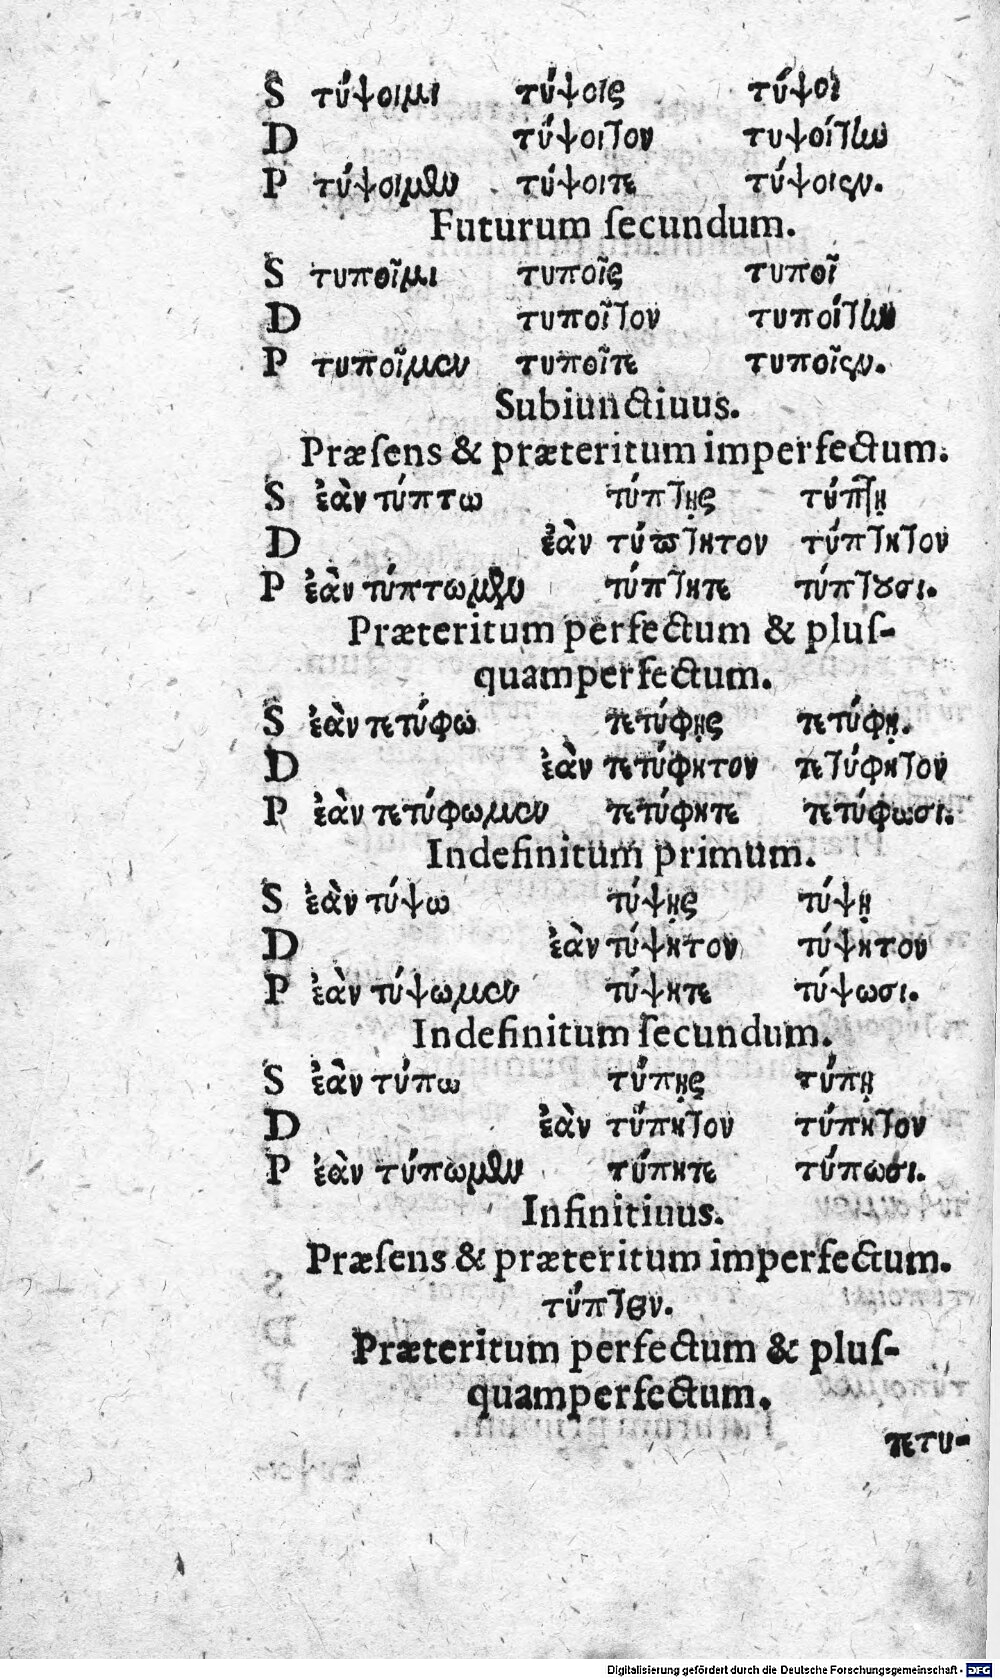 S τύψοιμι τύψοις τύψοι
D τύψοιτον τυψοίτων
P τύψοιμεν τύψοιτε τύψοιεν.
Futurum ſecundum.
S τυποῖμι τυποῖς τυποῖ
D τυποῖτον τυποίτων
P τυποῖμεν τυποῖτε τυποῖεν.
Subiunctiuus.
Præſens & præteritum imperfectum.
S ἐὰν τύπτω τύπτῃς τύπτῃ
D ἐὰν τύπτητον τύπτητον
P ἐὰν τύπτωμεν τύπτητε τύπτουσι.
Præteritum perfectum & pluſ-
quamperfectum.
S ἐὰν πετύφω πετύφῃς πετύφῃ.
D ἐὰν πετύφητον πετύφητον
P ἐὰν πετύφωμεν πετύφητε πετύφωσι.
Indefinitum primum.
S ἐὰν τύψω τύψῃς τύψῃ
D ἐὰν τύψητον τύψητον
P ἐὰν τύψωμεν τύψητε τύψωσι.
Indefinitum ſecundum.
S ἐὰν τύπω τύπῃς τύπῃ
D ἐὰν τύπητον τύπητον
P ἐὰν τύπωμεν τύπητε τύπωσι.
Infinitiuus.
Præſens & præteritum imperfectum.
τύπτειν.
Præteritum perfectum & pluſ-
quamperfectum.
πετυ-
Digitalisierung gefördert durch die Deutsche Forschungsgemeinschaft - DFG